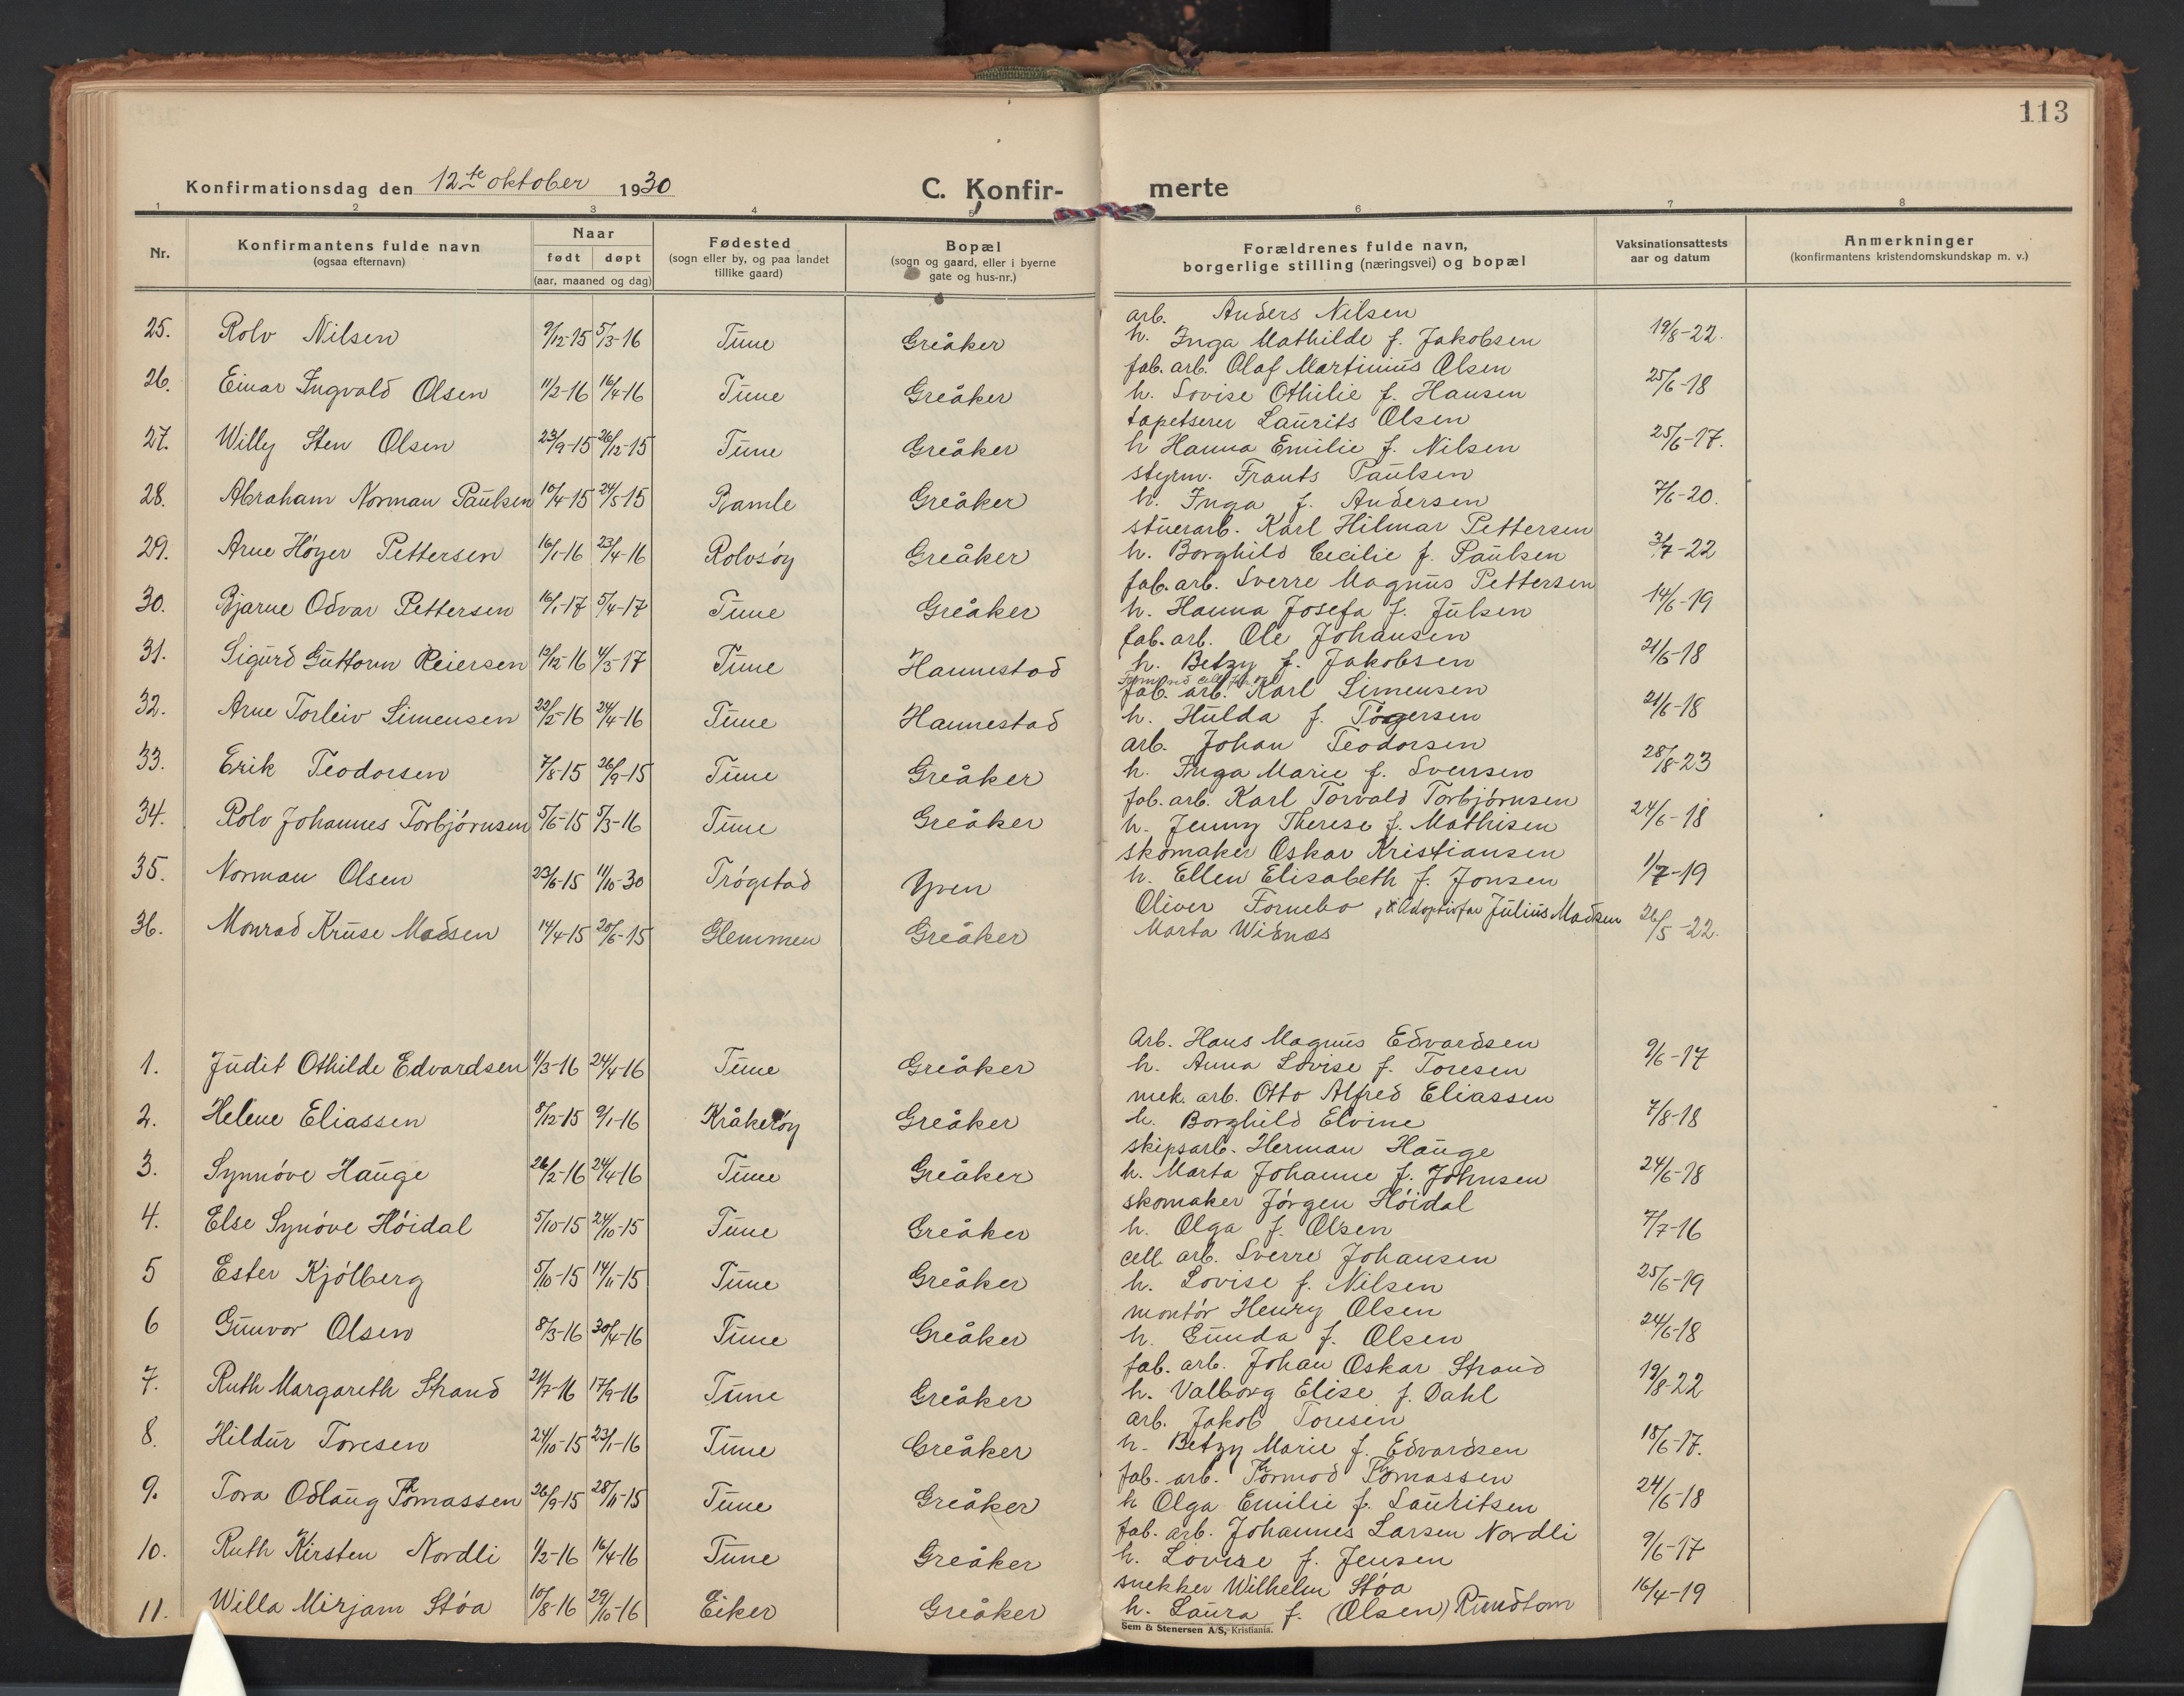 113
Konfirmationsdag den 12te oktober 1930 C. Konfir- merte
1 2 3 4 5 6 7 8
Nr. Konfirmantens fulde navn (ogsaa efternavn) Naar født døpt (aar, maaned og dag) Fødested (sogn eller by, og paa landet tillike gaard) Bopæl (sogn og gaard, eller i byerne gate og hus-nr.) Forældrenes fulde navn, borgerlige stilling (næringsvei) og bopæl Vaksinationsattests aar og datum Anmerkninger (konfirmantens kristendomskundskap m. v.)
arb. Anders Nilsen
25. Rolv Nilsen 9/12-15 5/3-16 Tune Greåker h. Inga Mathilde f. Jakobsen 19/8-22.
fab. arb. Olaf Martinius Olsen
26. Einar Ingvald Olsen 11/2-16 16/4-16 Tune Greåker h. Lovise Othilie f. Hansen 25/6-18
tapetserer Laurits Olsen
27. Willy Sten Olsen 23/9-15 26/12-15 Tune Greåker h Hanna Emilie f. Nilsen 25/6-17.
styrm. Frants Paulsen
28. Abraham Norman Paulsen 10/4-15 24/5-15 Bamle Greåker h. Inga f. Andersen 7/6-20.
stuerarb. Karl Hilmar Pettersen
29. Arne Høyer Pettersen 16/1-16 23/4-16 Rolvsøy Greåker h. Borghild Cecilie f. Paulsen 3/7-22
fab. arb. Sverre Magnus Pettersen
30. Bjarne Odvar Pettersen 16/1-17 5/4-17 Tune Greåker h. Hanna Josefa f. Julsen 14/6-19
fab. arb. Ole Johansen
31. Sigurd Guttorm Reiersen 19/12-16 4/3-17 Tune Hannestad h. Betzy f. Jakobsen 21/6-18
fab. arb. Karl Simensen
32. Arne Torleiv Simensen 22/2-16 24/4-16 Tune Hannestad h. Hulda f. Torgersen 21/6-18
arb. Johan Teodorsen
33. Erik Teodorsen 7/8-15 26/9-15 Tune Greåker h. Inga Marie f. Svensen 28/8-23
fab. arb. Karl Torvald Torbjørnsen
34. Rolv Johannes Torbjørnsen 5/6-15 5/3-16 Tune Greåker h. Jenny Therese f. Mathisen 24/6-18
skomaker Oskar Kristiansen
35. Norman Olsen 23/6-15 11/10-30 Trøgstad Yven h. Ellen Elisabeth f. Jonsen 1/7-19
Oliver Fornebo, Adoptivfar Julius Madsen
36. Monrad Kruse Madsen 14/4-15 20/6-15 Glemmen Greåker Marta Widnæs 26/5-22.
Arb. Hans Magnus Edvardsen
1. Judit Othilde Edvardsen 11/3-16 24/4-16 Tune Greåker h. Anna Lovise f. Toresen 9/6-17
mek. arb. Otto Alfred Eliassen
2. Helene Eliassen 8/12-15 9/1-16 Kråkerøy Greåker h. Borghild Elvine 7/8-18
skipsarb. Herman Hauge
3. Synnøve Hauge 26/2-16 24/4-16 Tune Greåker h. Marta Johanne f. Johnsen 24/6-18
skomaker Jørgen Høidal
4. Else Synøve Høidal 5/10-15 24/10-15 Tune Greåker h. Olga f. Olsen 7/7-16
cell. arb. Sverre Johansen
5 Ester Kjølberg 5/10-15 14/11-15 Tune Greåker h. Lovise f. Nilsen 25/6-19
montør Henry Olsen
6 Gunvor Olsen 8/3-16 30/4-16 Tune Greåker h. Gunda f. Olsen 24/6-18
fab. arb. Johan Oskar Strand
7. Ruth Margareth Strand 21/7-16 17/9-16 Tune Greåker h. Valborg Elise f. Dahl 19/8-22
arb. Jakob Toresen
8. Hildur Toresen 24/10-15 23/1-16 Tune Greåker h. Betzy Marie f. Edvardsen 18/6-17.
fab. arb. Thormod Thomassen
9. Tora Odlaug Thomassen 26/9-15 28/11-15 Tune Greåker h Olga Emilie f. Lauritsen 24/6-18
fab. arb. Johannes Larsen Nordli
10. Ruth Kirsten Nordli 1/2-16 16/4-16 Tune Greåker h. Lovise f. Jensen 9/6-17
snekker Wilhelm Støa
11. Willa Mirjam Støa 10/8-16 29/10-16 Eiker Greåker h. Laura f. (Olsen) Rundtom 16/4-19
Sem & Stenersen A/S, Kristiania.